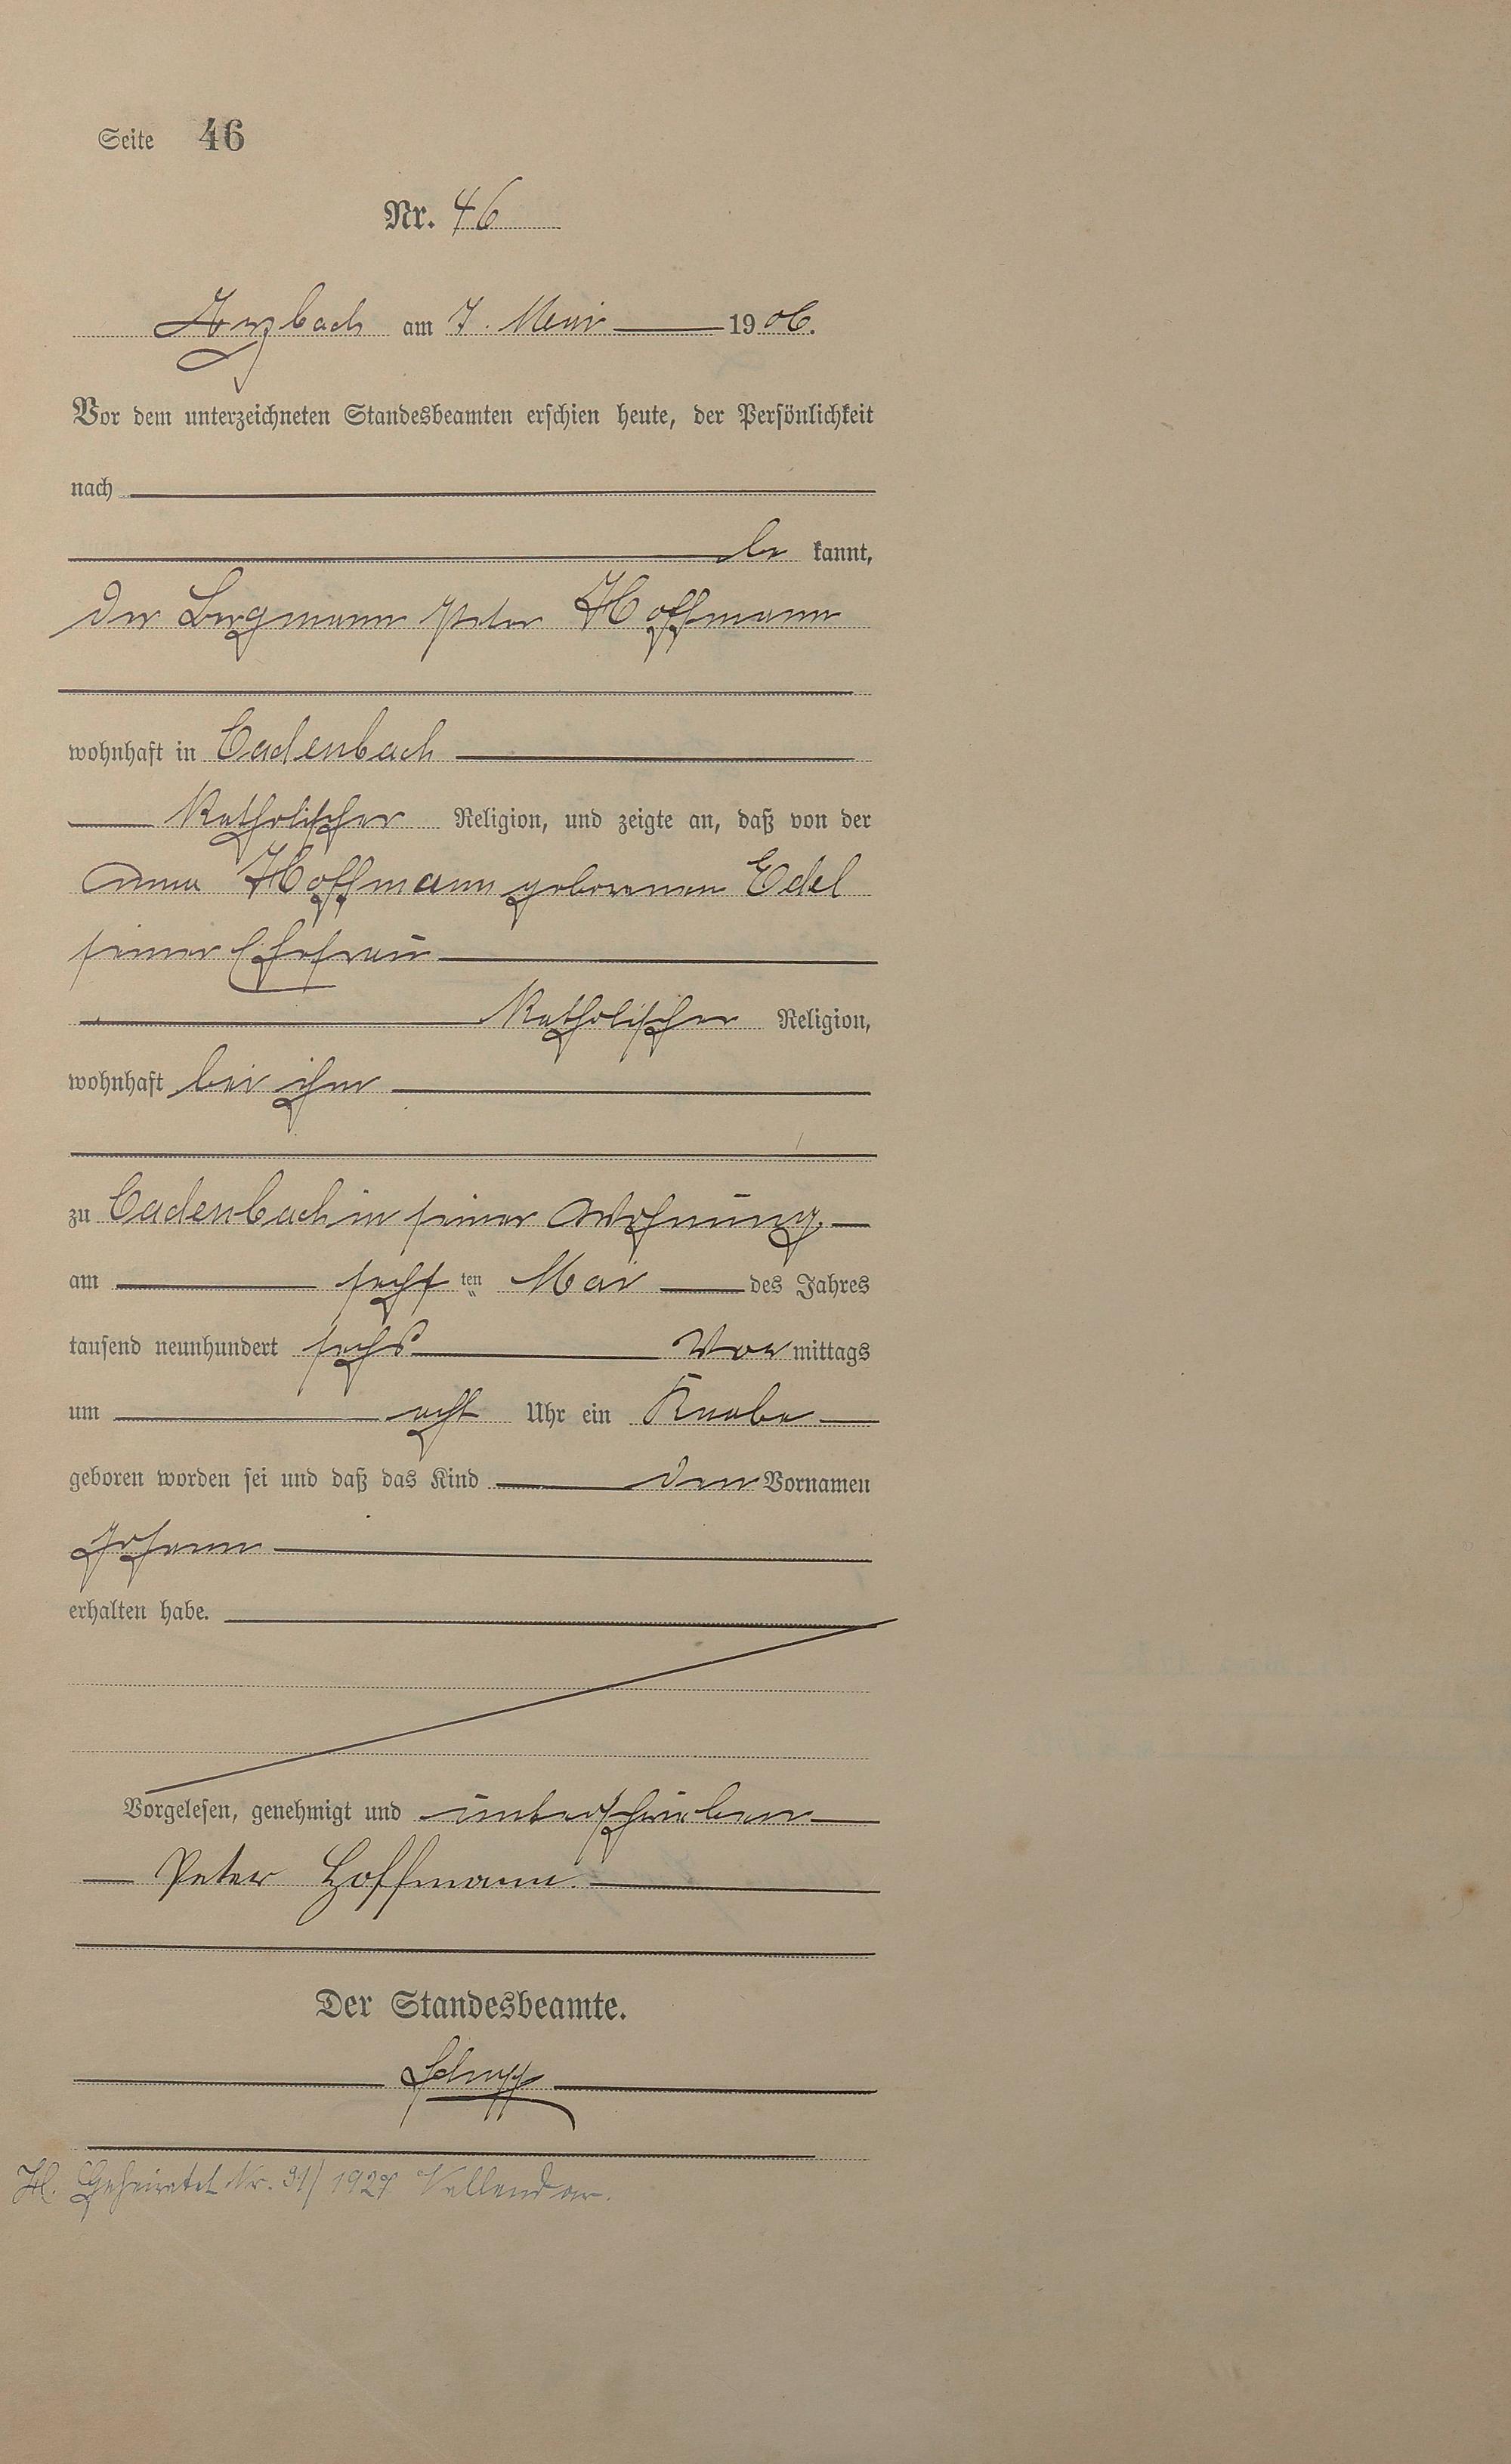 Seite 46
Nr. 46
Arzbach am 7. Mai 1906.
Vor dem unterzeichneten Standesbeamten erschien heute, der Persönlichkeit
nach
be kannt,
der Bergmann Peter Hoffmann
wohnhaft in Cadenbach
katholischer Religion, und zeigte an, daß von der
Anna Hoffmann geborenen Edel
seiner Ehefrau
katholischer Religion,
wohnhaft bei ihm
zu Cadenbach in seiner Wohnung,
am sechsten Mai des Jahres
tausend neunhundert sechs Vor mittags
um acht Uhr ein Knabe
geboren worden sei und daß das Kind den Vornamen
Johann
erhalten habe.
Vorgelesen, genehmigt und unterschrieben
Peter Hoffmann.
Der Standesbeamte.
Schupp
H. Geheiratet Nr. 31/1929 Vallendar.